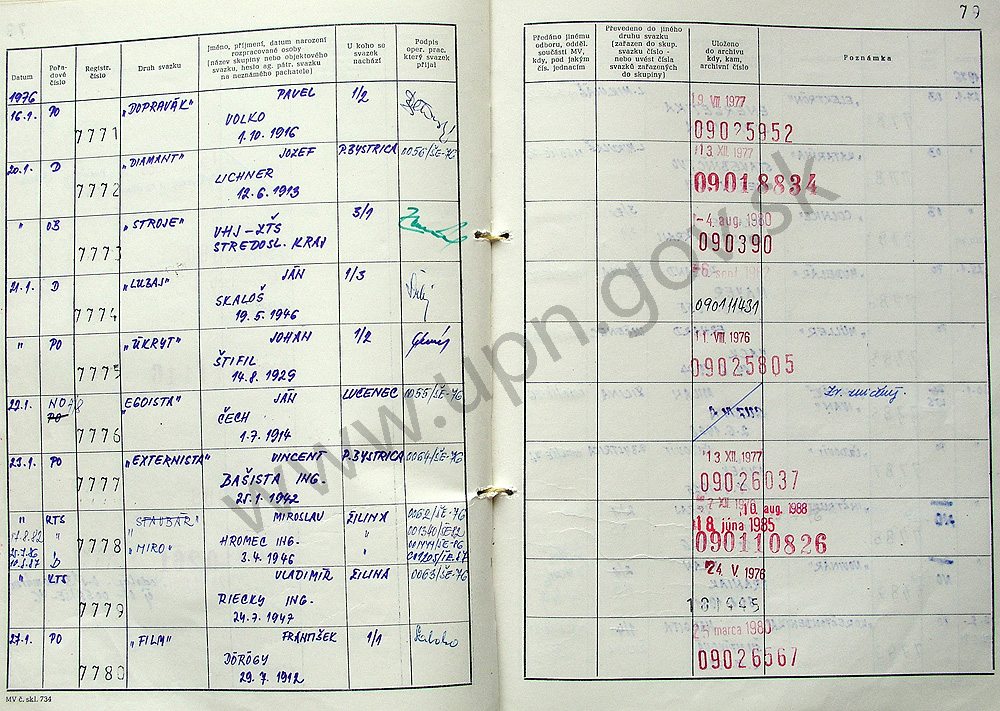 79
Datum
Pořadové číslo
Registr. číslo
Druh svazku
Jméno, příjmení, datum narození
rozpracované osoby
(název skupiny nebo objektového
svazku, heslo ag. pátr. svazku
na neznámého pachatele)
U koho se
svazek
nachází
Podpis
oper. prac.
který svazek
přijal
Předáno jinému
odboru, odděl.
součásti MV,
kdy, pod jakým
čís. jednacím
Převedeno do jiného
druhu svazku
(zařazen do skup.
svazku číslo -
nebo uvést čísla
svazků zařazených
do skupiny)
Uloženo
do archivu
kdy, kam,
archivní číslo
Poznámka
1976
16.1. PO 7771 "DOPRAVÁK" PAVEL 1/2
VOLKO
1.10.1916
19. VII. 1977
09025952
20.1. D 7772 "DIAMANT" JOZEF P.BYSTRICA 0056/ŠE-76
LICHNER
12.6.1913
13. XII. 1977
09018834
" OB 7773 "STROJE" 3/1
VHJ-ZŤS
STREDOSL. KRAJ
-4. aug. 1980
090390
21.1. D 7774 "LUBAJ" JÁN 1/3
SKALOŠ
19.5.1946
" PO 7775 "ÚKRYT" JOHAN 1/2
ŠTIFIL
14.8.1929
11. VIII. 1976
09025805
22.1. 7776 "EGOISTA" JÁN LUČENEC 0055/ŠE-76
ČECH
1.7.1914
23.1. PO 7777 "EXTERNISTA" VINCENT P.BYSTRICA 0064/ŠE-76
BAŠISTA ING.
25.1.1942
13. XII. 1977
09026037
" KTS 7778 "STAVBÁR" MIROSLAV ŽILINA 0062/ŠE-76
"MIRO" HROMEC ING.
3.4.1946
10. aug. 1988
18. júna 1985
090110826
" KTS 7779 VLADIMÍR ŽILINA 0063/ŠE-76
RIECKY ING.
24.7.1947
24. V. 1976
181945
27.1. PO 7780 "FILM" FRANTIŠEK 1/1
DÖRÖGY
29.7.1912
25. marca 1980
09026567
MV č. skl. 734
www.upn.gov.sk